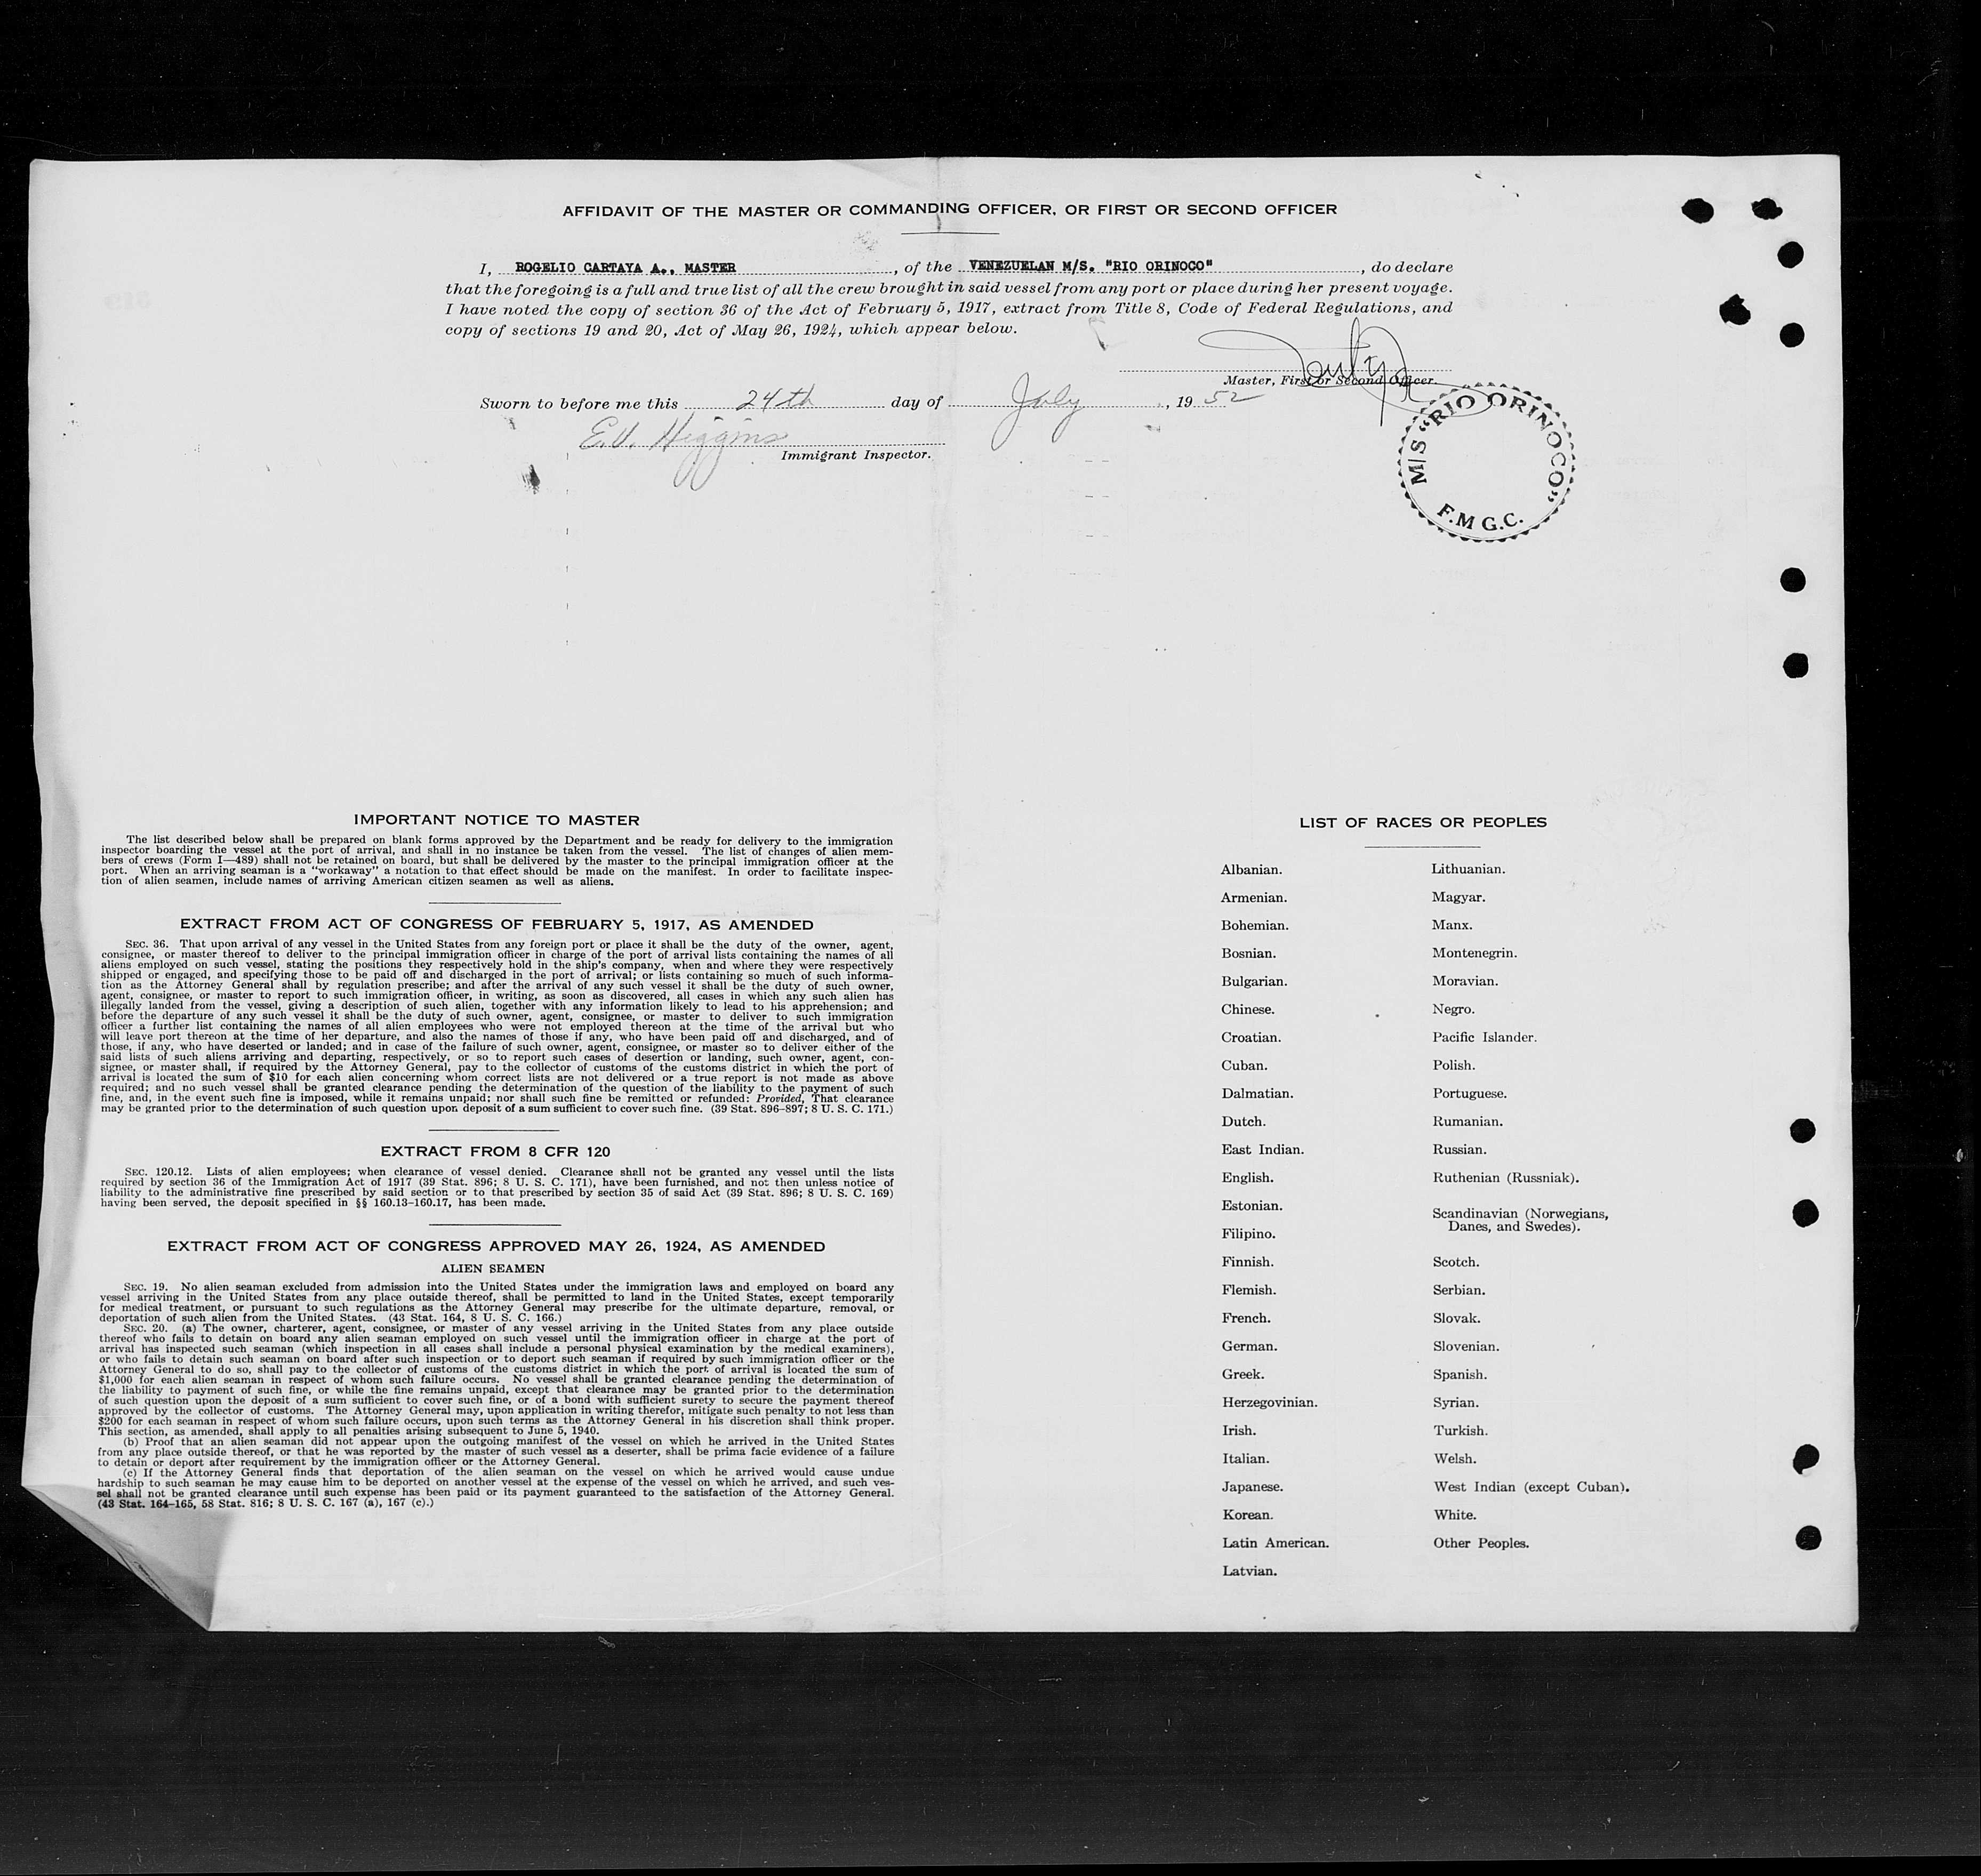 AFFIDAVIT OF THE MASTER OR COMMANDING OFFICER, OR FIRST OR SECOND OFFICER
I, ROGELIO CARTAYA A., MASTER, of the VENEZUELAN M/S. "RIO ORINOCO", do declare
that the foregoing is a full and true list of all the crew brought in said vessel from any port or place during her present voyage.
I have noted the copy of section 36 of the Act of February 5, 1917, extract from Title 8, Code of Federal Regulations, and
copy of sections 19 and 20, Act of May 26, 1924, which appear below.
Master, First or Second Officer.
Sworn to before me this 24th day of July, 1952
E.V. Higgins
Immigrant Inspector.
M/S "RIO ORINOCO"
F.M G.C.
IMPORTANT NOTICE TO MASTER
The list described below shall be prepared on blank forms approved by the Department and be ready for delivery to the immigration
inspector boarding the vessel at the port of arrival, and shall in no instance be taken from the vessel. The list of changes of alien mem-
bers of crews (Form I—489) shall not be retained on board, but shall be delivered by the master to the principal immigration officer at the
port. When an arriving seaman is a "workaway" a notation to that effect should be made on the manifest. In order to facilitate inspec-
tion of alien seamen, include names of arriving American citizen seamen as well as aliens.
EXTRACT FROM ACT OF CONGRESS OF FEBRUARY 5, 1917, AS AMENDED
SEC. 36. That upon arrival of any vessel in the United States from any foreign port or place it shall be the duty of the owner, agent,
consignee, or master thereof to deliver to the principal immigration officer in charge of the port of arrival lists containing the names of all
aliens employed on such vessel, stating the positions they respectively hold in the ship's company, when and where they were respectively
shipped or engaged, and specifying those to be paid off and discharged in the port of arrival; or lists containing so much of such informa-
tion as the Attorney General shall by regulation prescribe; and after the arrival of any such vessel it shall be the duty of such owner,
agent, consignee, or master to report to such immigration officer, in writing, as soon as discovered, all cases in which any such alien has
illegally landed from the vessel, giving a description of such alien, together with any information likely to lead to his apprehension; and
before the departure of any such vessel it shall be the duty of such owner, agent, consignee, or master to deliver to such immigration
officer a further list containing the names of all alien employees who were not employed thereon at the time of the arrival but who
will leave port thereon at the time of her departure, and also the names of those if any, who have been paid off and discharged, and of
those, if any, who have deserted or landed; and in case of the failure of such owner, agent, consignee, or master so to deliver either of the
said lists of such aliens arriving and departing, respectively, or so to report such cases of desertion or landing, such owner, agent, con-
signee, or master shall, if required by the Attorney General, pay to the collector of customs of the customs district in which the port of
arrival is located the sum of $10 for each alien concerning whom correct lists are not delivered or a true report is not made as above
required; and no such vessel shall be granted clearance pending the determination of the question of the liability to the payment of such
fine, and, in the event such fine is imposed, while it remains unpaid; nor shall such fine be remitted or refunded: Provided, That clearance
may be granted prior to the determination of such question upon deposit of a sum sufficient to cover such fine. (39 Stat. 896-897; 8 U. S. C. 171.)
EXTRACT FROM 8 CFR 120
SEC. 120.12. Lists of alien employees; when clearance of vessel denied. Clearance shall not be granted any vessel until the lists
required by section 36 of the Immigration Act of 1917 (39 Stat. 896; 8 U. S. C. 171), have been furnished, and not then unless notice of
liability to the administrative fine prescribed by said section or to that prescribed by section 35 of said Act (39 Stat. 896; 8 U. S. C. 169)
having been served, the deposit specified in §§ 160.13-160.17, has been made.
EXTRACT FROM ACT OF CONGRESS APPROVED MAY 26, 1924, AS AMENDED
ALIEN SEAMEN
SEC. 19. No alien seaman excluded from admission into the United States under the immigration laws and employed on board any
vessel arriving in the United States from any place outside thereof, shall be permitted to land in the United States, except temporarily
for medical treatment, or pursuant to such regulations as the Attorney General may prescribe for the ultimate departure, removal, or
deportation of such alien from the United States. (43 Stat. 164, 8 U. S. C. 166.)
SEC. 20. (a) The owner, charterer, agent, consignee, or master of any vessel arriving in the United States from any place outside
thereof who fails to detain on board any alien seaman employed on such vessel until the immigration officer in charge at the port of
arrival has inspected such seaman (which inspection in all cases shall include a personal physical examination by the medical examiners),
or who fails to detain such seaman on board after such inspection or to deport such seaman if required by such immigration officer or the
Attorney General to do so, shall pay to the collector of customs of the customs district in which the port of arrival is located the sum of
$1,000 for each alien seaman in respect of whom such failure occurs. No vessel shall be granted clearance pending the determination of
the liability to payment of such fine, or while the fine remains unpaid, except that clearance may be granted prior to the determination
of such question upon the deposit of a sum sufficient to cover such fine, or of a bond with sufficient surety to secure the payment thereof
approved by the collector of customs. The Attorney General may, upon application in writing therefor, mitigate such penalty to not less than
$200 for each seaman in respect of whom such failure occurs, upon such terms as the Attorney General in his discretion shall think proper.
This section, as amended, shall apply to all penalties arising subsequent to June 5, 1940.
(b) Proof that an alien seaman did not appear upon the outgoing manifest of the vessel on which he arrived in the United States
from any place outside thereof, or that he was reported by the master of such vessel as a deserter, shall be prima facie evidence of a failure
to detain or deport after requirement by the immigration officer or the Attorney General.
(c) If the Attorney General finds that deportation of the alien seaman on the vessel on which he arrived would cause undue
hardship to such seaman he may cause him to be deported on another vessel at the expense of the vessel on which he arrived, and such ves-
sel shall not be granted clearance until such expense has been paid or its payment guaranteed to the satisfaction of the Attorney General.
(43 Stat. 164-165, 58 Stat. 816; 8 U. S. C. 167 (a), 167 (c).)
LIST OF RACES OR PEOPLES
Albanian.
Armenian.
Bohemian.
Bosnian.
Bulgarian.
Chinese.
Croatian.
Cuban.
Dalmatian.
Dutch.
East Indian.
English.
Estonian.
Filipino.
Finnish.
Flemish.
French.
German.
Greek.
Herzegovinian.
Irish.
Italian.
Japanese.
Korean.
Latin American.
Latvian.
Lithuanian.
Magyar.
Manx.
Montenegrin.
Moravian.
Negro.
Pacific Islander.
Polish.
Portuguese.
Rumanian.
Russian.
Ruthenian (Russniak).
Scandinavian (Norwegians,
Danes, and Swedes).
Scotch.
Serbian.
Slovak.
Slovenian.
Spanish.
Syrian.
Turkish.
Welsh.
West Indian (except Cuban).
White.
Other Peoples.